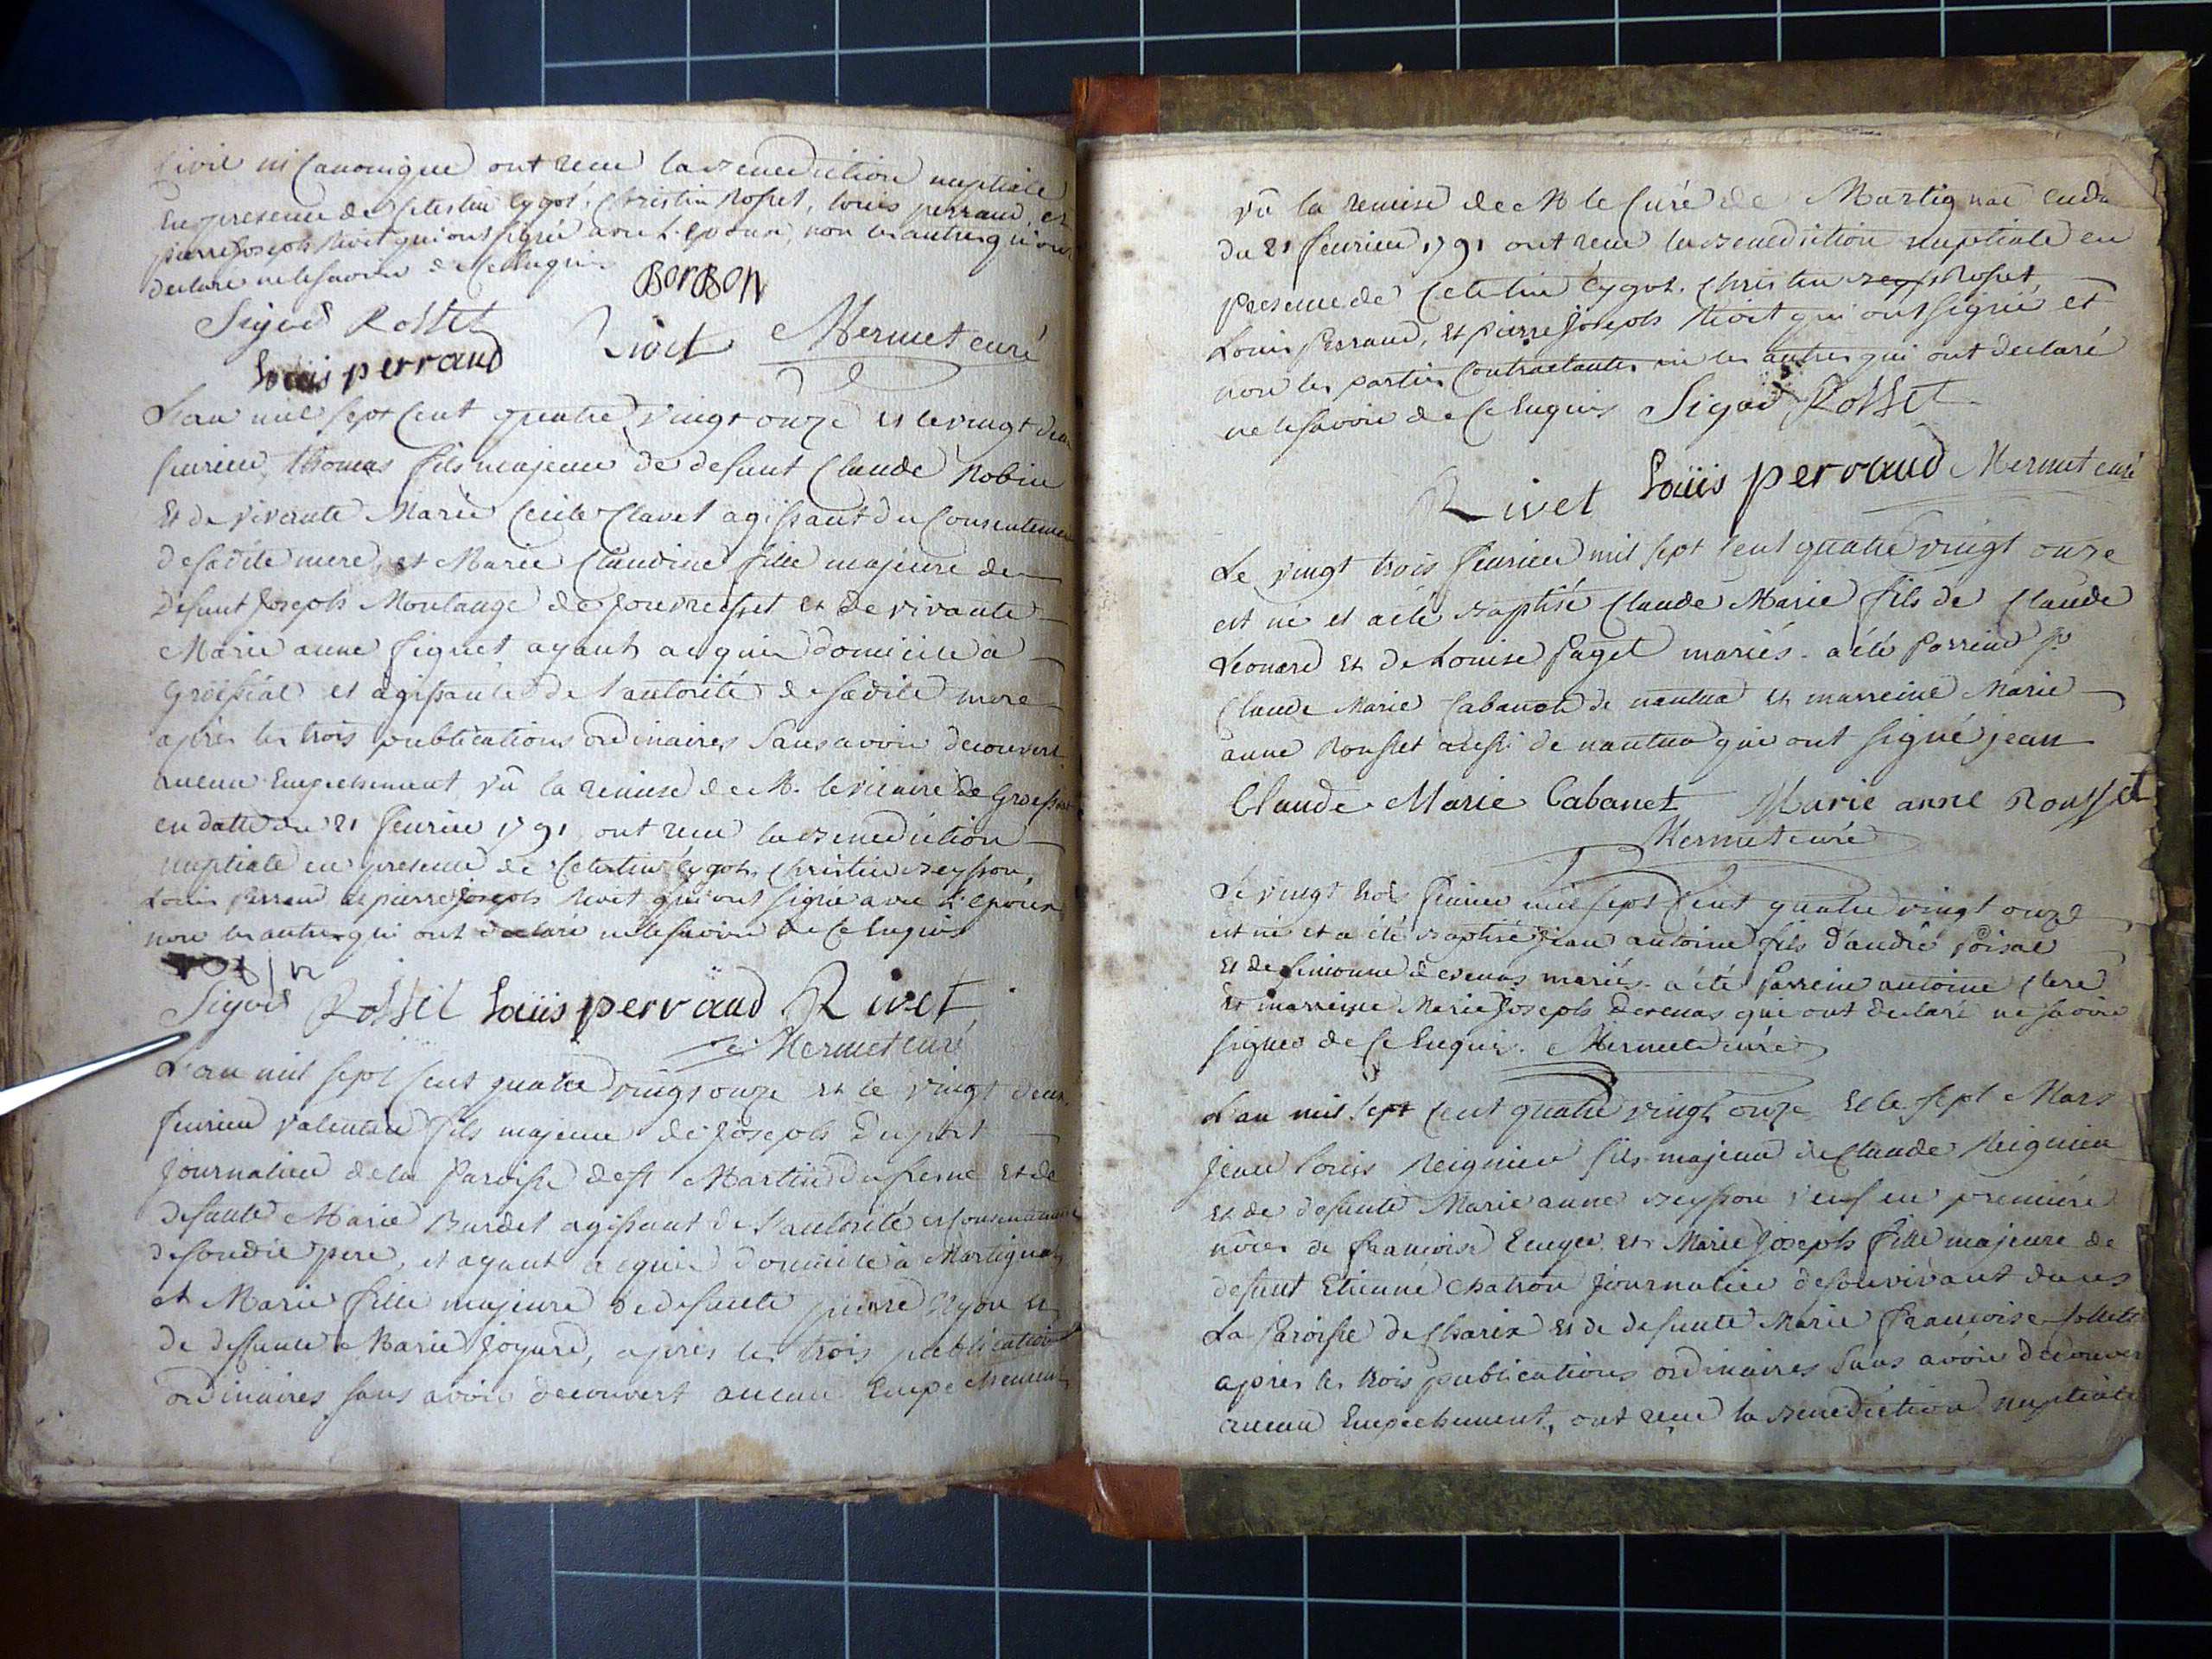 Civil ni Canonique ont recu la Benediction nuptiale
En presence de Celestin Cygod, Christin Rosset, Louis perraud, et
pierre Joseph Rivet qui ont signé avec L'epoux, non les autres qui ont
declaré ne le savoir de ce Enquis
BorBon
Sigod Rosset Rivet Mermet curé
Louis perraud
L'an mil sept Cent quatre vingt onze et le vingt deux
fevrier, Thomas fils majeur de defunt Claude Robin
Et de vivante Marie Cecile Clavet agissant du Consentement
de sadite mere, et Marie Claudine fille majeure de
Defunt Joseph Montange de et de vivante
Marie anne ayant acquis domicile à
Groissiat et agissante de l'autorité de sadite mere
après les trois publications ordinaires sans avoir decouvert
aucun Empechement, vû la remise de M. le vicaire de Groissiat
en datte du 21 fevrier 1791 ont recu la Benediction
nuptiale en presence de Celestin Cygod, Christin Beysson,
Louis perraud et pierre Joseph Rivet qui ont signé avec L'epoux
non les autres qui ont declaré ne le savoir de ce Enquis
robin
Sigod Rosset Louis perraud Rivet
Mermet curé
L'an mil sept Cent quatre vingt onze et le vingt deux
fevrier valentin fils majeur de Joseph Duport
Journalier de la Paroisse de St Martin du fresne et de
defunte Marie Burdet agissant de l'autorité et Consentement
de sondit pere, et ayant acquis domicile à Martignat
et Marie fille majeure de defunt pierre et
de deffunte Marie Joyard, après les trois publications
ordinaires sans avoir decouvert aucun Empechement
vû la remise de M le Curé de Martignat en date
du 21 fevrier 1791 ont recu la Benediction nuptiale en
presence de Celestin Cygod, Christin Rosset,
Louis Perraud, et pierre Joseph Rivet qui ont signé et
non les parties Contractantes ni les autres qui ont declaré
ne le savoir de ce Enquis Sigod Rosset
Rivet Louis perraud Mermet curé
Le vingt trois fevrier mil sept Cent quatre vingt onze
est né et a été Baptisé Claude Marie fils de Claude
Leonard et de Louise Paget mariés. a été Parrein
Claude Marie Cabanet de nantua et marreine Marie
anne Rousset aussi de nantua qui ont signé jean
Claude Marie Cabanet Marie anne Rousset
Mermet curé
Le vingt trois fevrier mil sept Cent quatre vingt onze
est né et a été Baptisé Jean antoine fils d'andré Poisat
et de Simonne Devenas mariés. a été Parrein antoine Clerc
et marreine Marie Joseph Devenas qui ont declaré ne savoir
signer de ce Enquis. Mermet curé
L'an mil sept Cent quatre vingt onze et le sept Mars
Jean Louis Reignier fils majeur de Claude Reignier
et de defunte Marie anne Beysson veuf en premiere
nôces de françoise et Marie Joseph fille majeure de
defunt Etienne Chatron Journalier de son vivant dans
La Paroisse de Charix et de defunte Marie Françoise
après les trois publications ordinaires sans avoir decouvert
aucun Empechement, ont recu la Benediction nuptiale